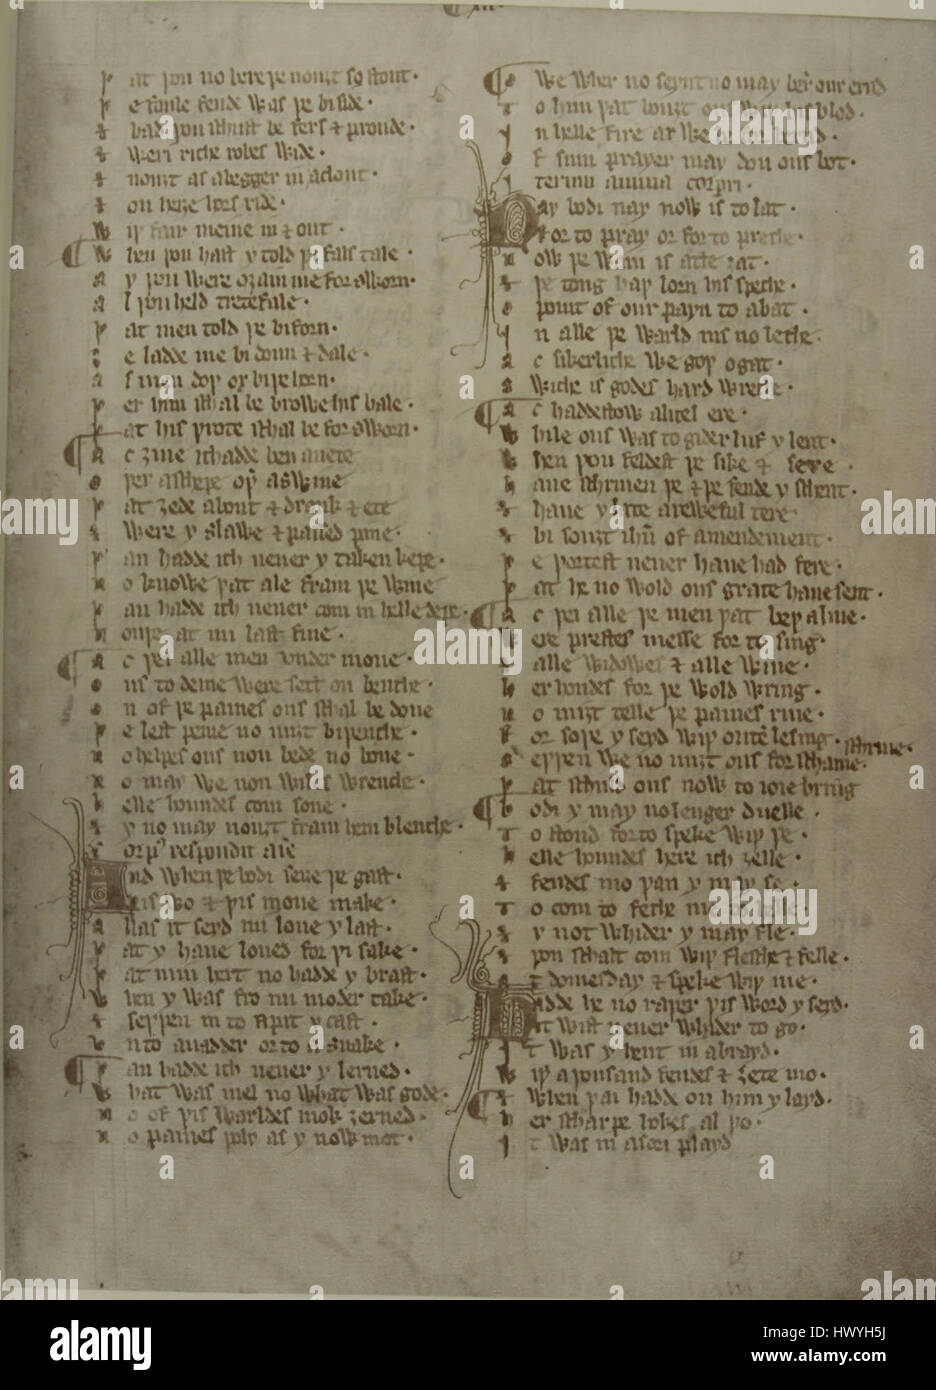 þ at þou no bere þe nouȝt so stout.
þ e foule fende was þe biside.
& bad þou schust be fers & proude.
& weri riche robes wide.
& nouȝt as a begger in a clout.
& on heiȝe hors ride.
W iþ fair meine in & out.
W hen þou hast y told þi fals tale.
A y þou were of aim me for sworn.
A l þou held trewe tale.
þ at men told þe biforn.
& e ladde me bi doun & dale.
A s man doþ ox bi þe horn.
þ er him schal be browe his bale.
þ at his þrote schal be for schorn.
A c ȝiue ich hadde ben
o þer a schepe oþer a swine
þ at ȝede about & drank & ete
& were y slawe & passed pine.
þ an hadde ich neuer y taken hepe.
N o knowe þat ale fram þe wine
þ an hadde ich neuer com in helle depe.
N ouþer at mi last fine.
A c þei alle men vnder mone.
o ns to deme were sett on benche.
o n of þe paines ous schal be done
þ e lest peine no miȝt biþenche.
N o helpeþ ous non bede no bone.
N o may we non wiles wrenche.
H elle houndes com sone.
& y no may nouȝt fram hem blenche.
C orpus respondit anime
And when þe bodi seiȝe þe gast.
þ is wo & þis mone make.
A llas it seyd mi loue y last.
þ at y haue loued for þi sake.
þ at min hert no hadde y brast.
W hen y was fro mi moder take.
& seþþen in to a pit y cast.
o nto a nadder or to a snake.
þ an hadde ich neuer y lerned.
W hat was iuel no what was gode.
N o of þis warldes mok ȝerned.
N o paines þoly as y now mot.
W e wher no seynt no may ber our ernd
T o him þat bouȝt ous wiþ his blod.
I n helle fire ar we be brend.
o f sum prayer may don ous bot.
I terum anima corpori.
Nay bodi nay now is to lat.
F or to pray or for to preche.
N ow þe wain is atte gat.
& þe tong haþ lorn his speche.
o point of our payn to abat.
I n alle þe warld nis no leche.
A c siberliche we goþ o gat.
S wiche is godes hard wreche.
A c haddestow a litel ere.
W hile ous was to gider liif y lent.
W hen þou feldest þe sike & sere.
H aue schriuen þe & þe fende y schent.
& haue y a reweful tere.
& bi souȝt ihū of amendement.
þ e þortest neuer haue had fere.
þ at he no wold ous grace haue sent.
A c þei alle þe men þat beþ aliue.
W ere prestes messe for to sing.
& alle widowes & alle wiue.
H er hondes for þe wold wring.
N o miȝt telle þe paines riue.
F or soþe y seyd wiþ outen lesing.
S eþþen we no miȝt ous for schame schriue.
þ at schuld ous now to ioie bring
B odi y may no lenger duelle.
T o stond for to speke wiþ þe.
H elle houndes here ich ȝelle.
& fendes mo þan y may se.
T o com to feche me to helle
& y not whider y may fle.
& þou schalt com wiþ flesche & felle.
A t domesday & speke wiþ me.
Hadde he no raþer þis word y seyd.
It wist neuer whider to go.
I t was y hent in a brayd.
W iþ a þousand fendes & ȝete mo.
& when þai hadde on him y layd.
H er scharpe hokes al þo.
I t was in a sori playd
alamy
Image ID: HWYH5J
www.alamy.com